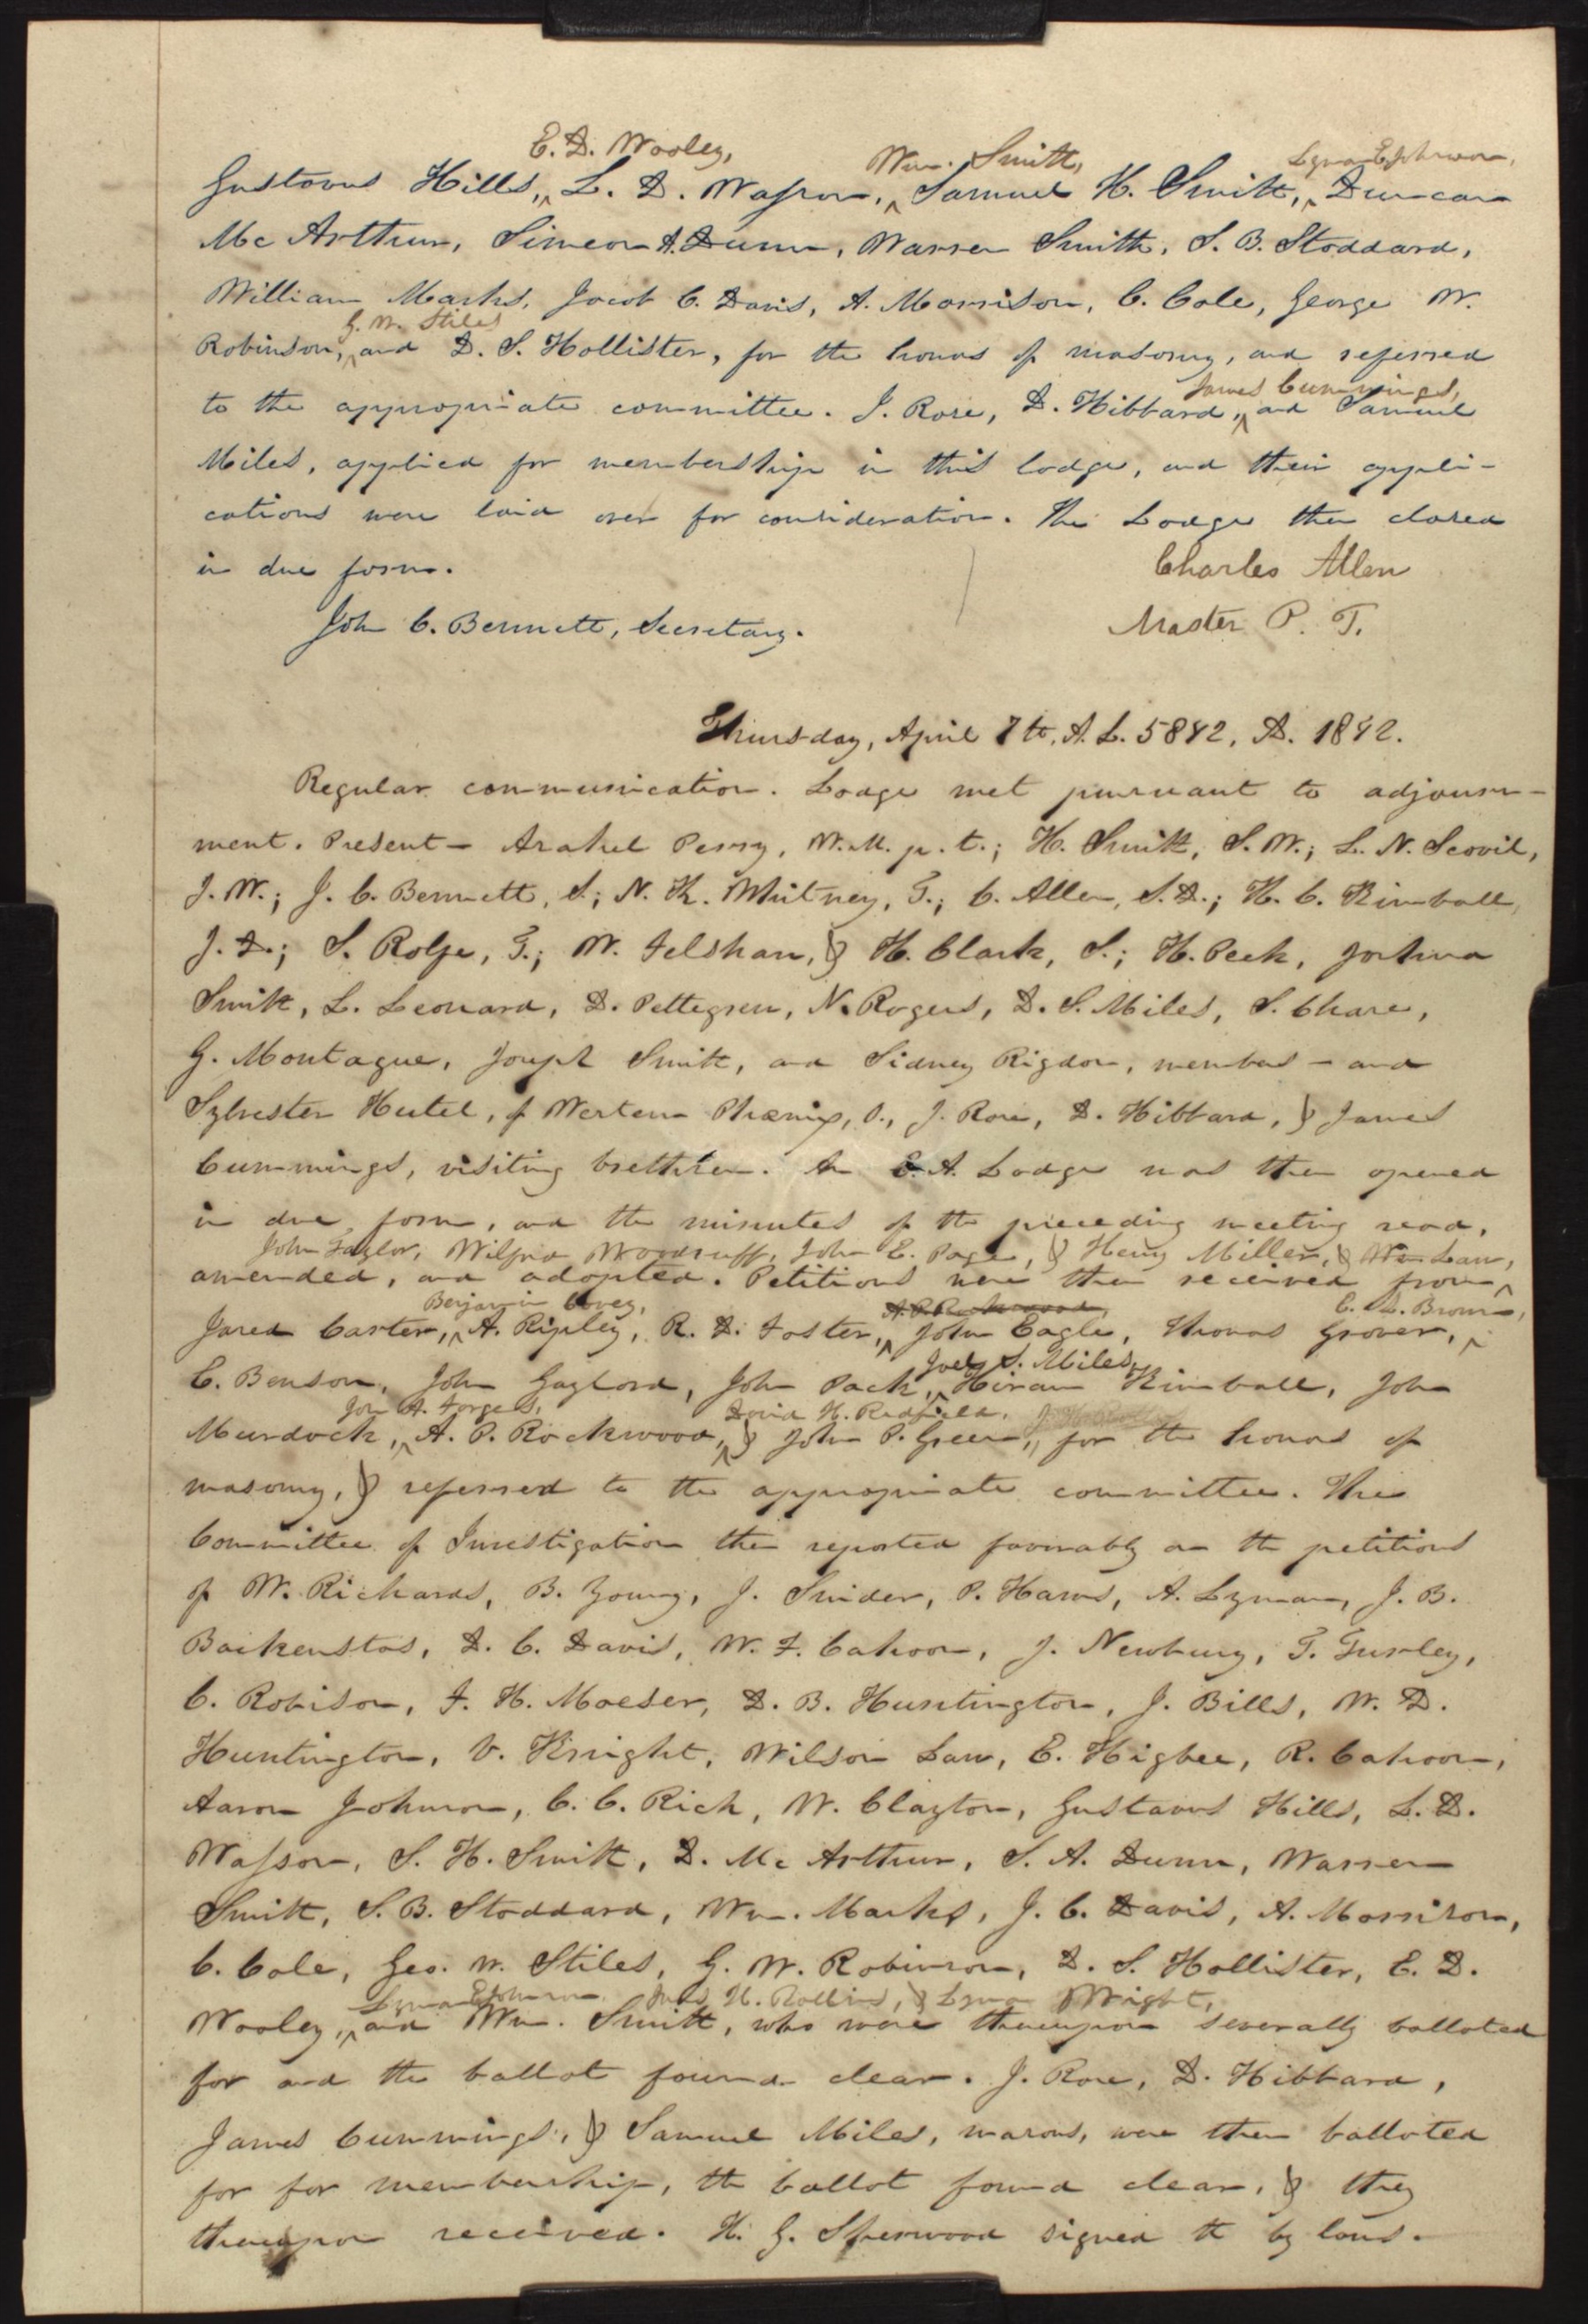 E. D. Wooley, Wm. Smith, Lyman E. Johnson,
Gustavus Hills, ‸ L. D. Wasson, ‸ Samuel H. Smith, ‸ Duncan
Mc Arthur, Simeon A. Dunn, Warren Smith, S. B. Stoddard,
William Marks, Jacob C. Davis, A. Morrison, C. Cole, George W.
G. W. Stiles
Robinson, ‸ and D. S. Hollister, for the honors of masonry, and referred
James Cummings,
to the appropriate committee. J. Rose, D. Hibbard, ‸ and Samuel
Miles, applied for membership in this lodge, and their appli-
cations were laid over for consideration. The Lodge then closed
in due form.
Charles Allen
John C. Bennett, Secretary.
Master P. T.
Thursday, April 7th, A. L. 5842, A. D. 1842.
Regular communication. Lodge met pursuant to adjourn-
ment. Present - Asahel Perry, W. M. p. t.; H. Smith, S. W.; L. N. Scovil,
J. W.; J. C. Bennett, S.; N. K. Whitney, T.; C. Allen, S. D.; H. C. Kimball,
J. D.; S. Rolfe, T.; W. Felshaw, & H. Clark, S.; H. Peck, Joshua
Smith, L. Leonard, D. Pettegrew, N. Rogers, D. S. Miles, S. Chase,
G. Montague, Joseph Smith, and Sidney Rigdon, members - and
Sylvester Hulet, of Western Phœnix, O., J. Rose, D. Hibbard, & James
Cummings, visiting brethren. An E. A. Lodge was then opened
in due form, and the minutes of the preceding meeting read,
John Taylor, Wilford Woodruff, John E. Page, & Henry Miller, & Wm Law,
amended, and adopted. Petitions were then received from ‸
Benjamin Covey, A. P. Rockwood, C. L. Brown,
Jared Carter, ‸ A. Ripley, R. D. Foster, ‸ John Eagle, Thomas Grover, ‸
Joel S. Miles,
E. Benson, John Gaylord, John Pack, ‸ Hiram Kimball, John
John A. Forgeus, David H. Redfield,
Murdock, ‸ A. P. Rockwood, ‸ & John P. Green, for the honors of
masonry, & referred to the appropriate committee. The
Committee of Investigation then reported favorably on the petitions
of W. Richards, B. Young, J. Snider, P. Haws, A. Lyman, J. B.
Backenstos, D. C. Davis, W. F. Cahoon, J. Newbury, T. Gurley,
C. Robison, F. H. Moeser, D. B. Huntington, J. Bills, W. D.
Huntington, V. Knight, Wilson Law, E. Higbee, R. Cahoon,
Aaron Johnson, C. C. Rich, W. Clayton, Gustavus Hills, L. D.
Wasson, S. H. Smith, D. Mc Arthur, S. A. Dunn, Warren
Smith, S. B. Stoddard, Wm. Marks, J. C. Davis, A. Morrison,
C. Cole, Geo. W. Stiles, G. W. Robinson, D. S. Hollister, E. D.
Lyman E. Johnson, James H. Rollins, & Lyman Wight,
Wooley, ‸ and Wm. Smith, who were thereupon severally balloted
for and the ballot found clear. J. Rose, D. Hibbard,
James Cummings, & Samuel Miles, masons, were then balloted
for for membership, the ballot found clear, & they
thereupon received. H. G. Sherwood signed the by laws.